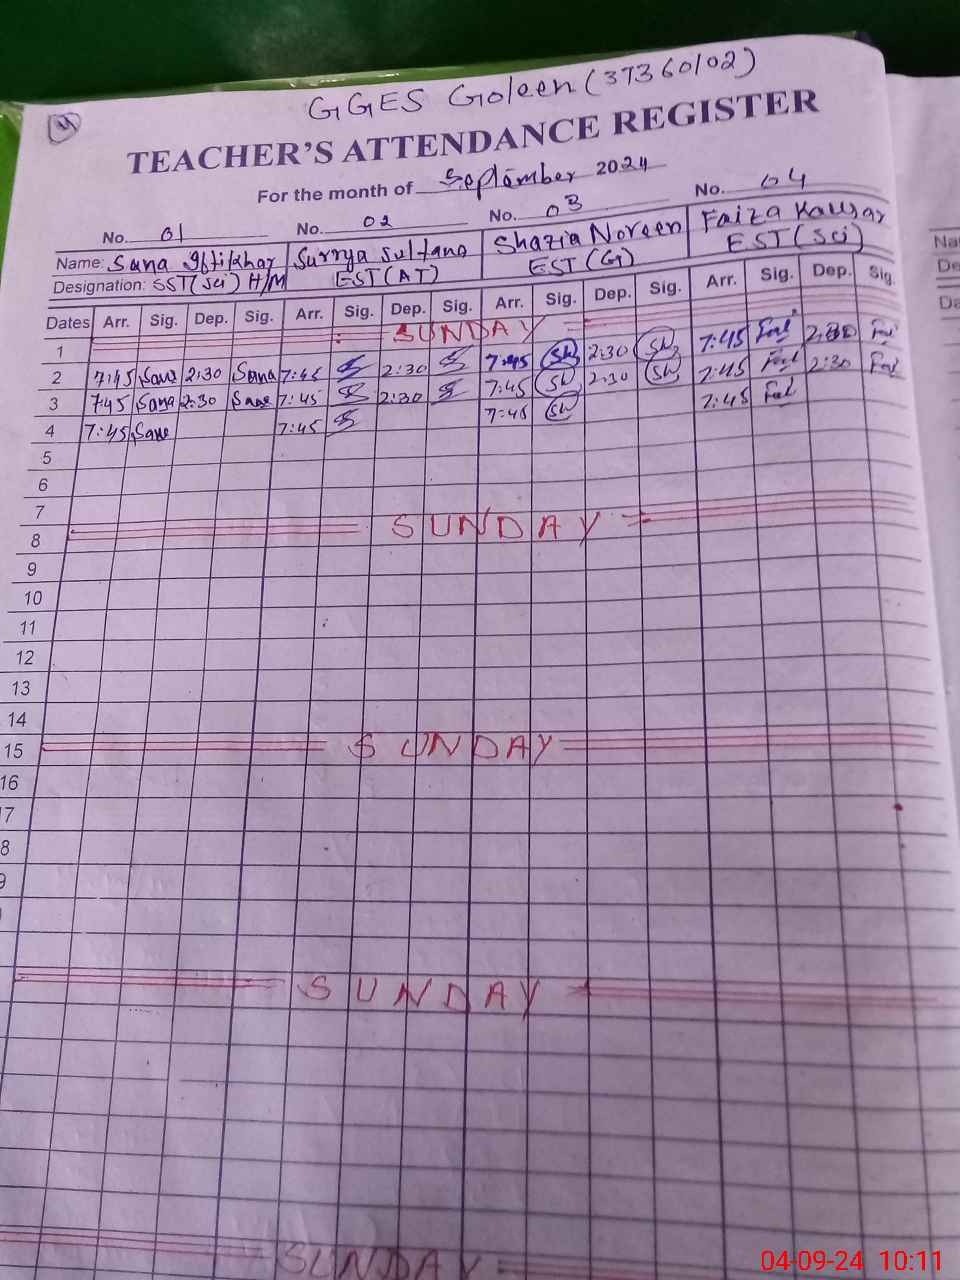 GGES Goleen (37360102)
TEACHER'S ATTENDANCE REGISTER
For the month of September 2024
No. 01 No. 02 No. 03 No. 04
Name: Sana Iftikhar Surryya Sultana Shazia Noreen Faiza Kausar Na
Designation: SST(Sci) H/M EST(AT) EST(G) EST(Sci) De
Dates Arr. Sig. Dep. Sig. Arr. Sig. Dep. Sig. Arr. Sig. Dep. Sig. Arr. Sig. Dep. Sig. Da
1 SUNDAY
2 7:45 Sana 2:30 Sana 7:45 2:30 7:45 Sh 2:30 Sh 7:45 2:30
3 7:45 Sana 2:30 Sana 7:45 2:30 7:45 Sh 2:30 Sh 7:45 2:30
4 7:45 Sana 7:45 7:45 Sh 7:45
5
6
7
8 SUNDAY
9
10
11
12
13
14
15 SUNDAY
16
7
8
9
SUNDAY
SUNDAY
04-09-24 10:11